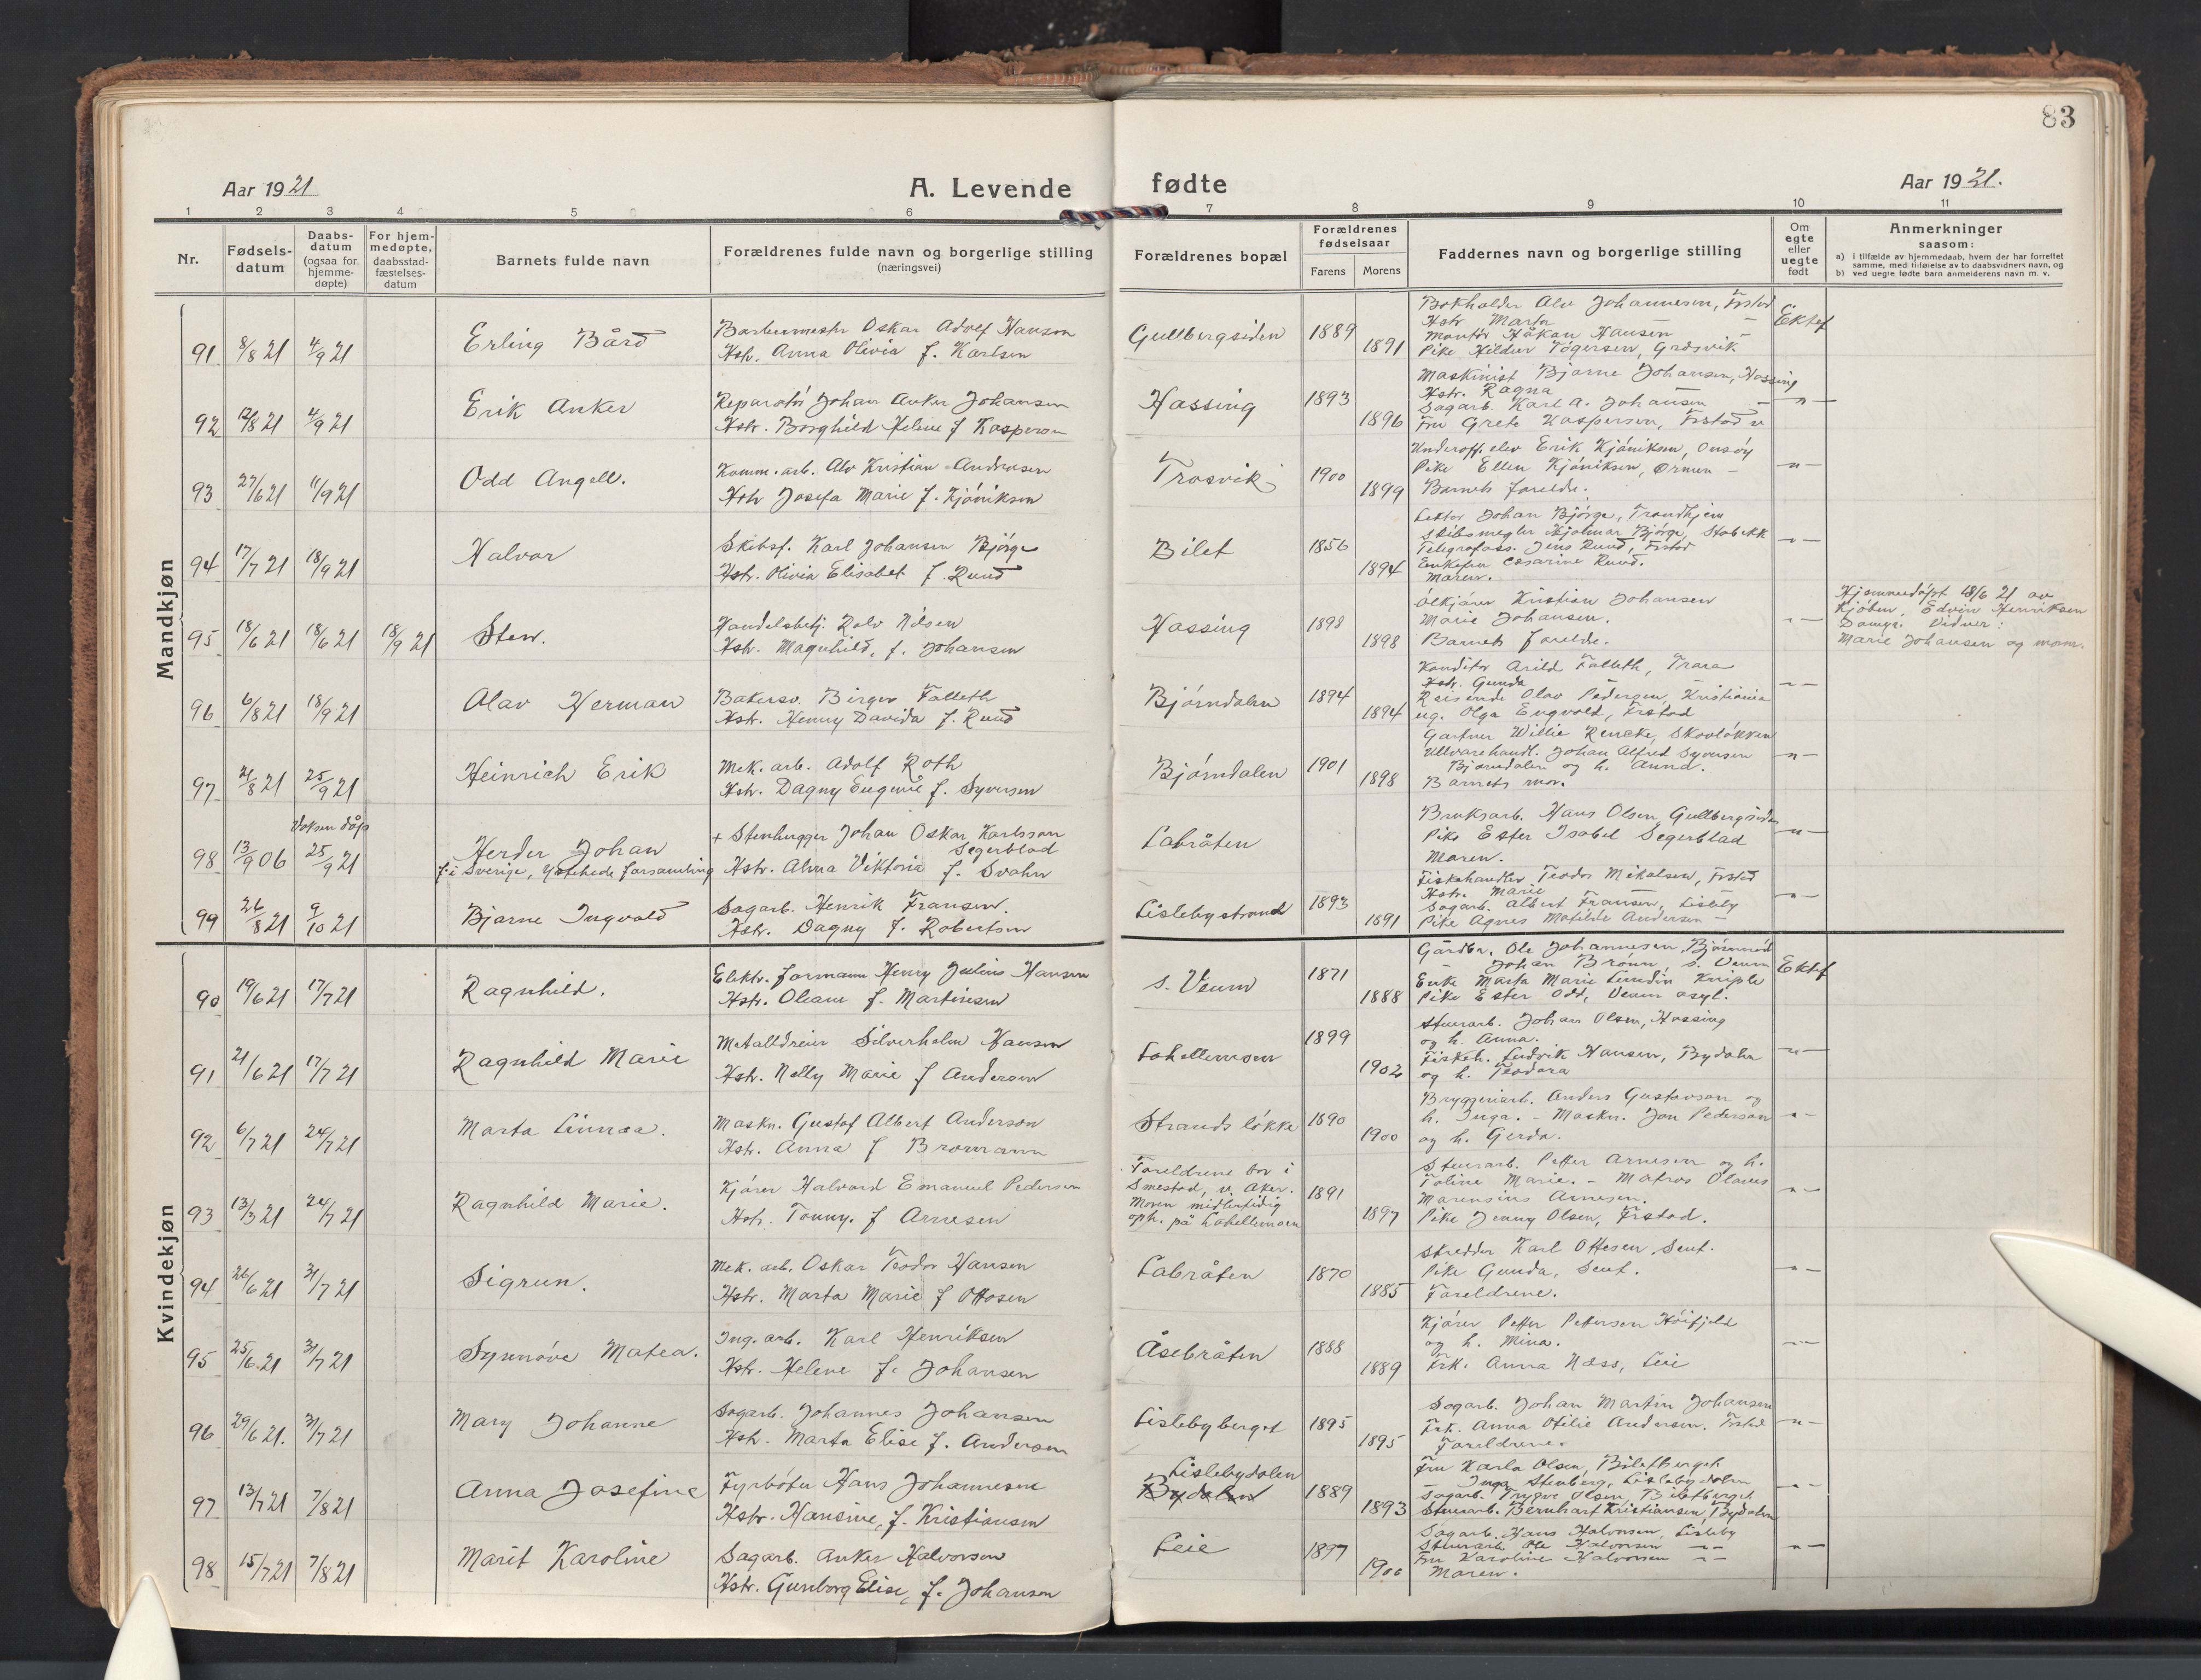 83
Aar 1921
A. Levende fødte
Aar 1921.
1 2 3 4 5 6 7 8 9 10 11
Nr.
Fødsels-
datum
Daabs-
datum
(ogsaa for
hjemme-
døpte)
For hjem-
medøpte,
daabsstad-
fæstelses-
datum
Barnets fulde navn
Forældrenes fulde navn og borgerlige stilling
(næringsvei)
Forældrenes bopæl
Forældrenes
fødselsaar
Farens
Morens
Faddernes navn og borgerlige stilling
Om
egte
eller
uegte
født
Anmerkninger
saasom:
a) i tilfælde av hjemmedaab, hvem der har forrettet
samme, med tilføielse av to daabsvidners navn, og
b) ved uegte fødte barn anmelderens navn m. v.
Mandkjøn
91 8/8 21 4/9 21
Erling Bård
Barbermester Oskar Adolf Hansen
Hstr. Anna Olivia f. Karlsen
Gullbergsiden
1889
1891
Bokholder Alv Johannesen, Frstad
Hstr Marta —
Montör Håkan Hansen —
Pike Hildur Tögersen, Gresvik
Ektef
92 12/8 21 4/9 21
Erik Anker
Reparatör Johan Anker Johansen
Hstr. Borghild Helene f Kaspersen
Hassing
1893
1896
Maskinist Bjarne Johansen, Hassing
Hstr. Ragna
Sagarb. Karl A. Johansen —
Fru Grete Kaspersen, Frstad v
—"—
93 27/6 21 11/9 21
Odd Angell.
Komm. arb. Alv Kristian Andreasen
Hstr Josefa Marie f. Kjöniksen
Trosvik
1900
1899
Underoff. elev Erik Kjöniksen, Onsöy
Pike Ellen Kjöniksen, Ørmen —
Barnets foreldre.
—"—
94 17/7 21 18/9 21
Halvor
Skibsf. Karl Johansen Björge
Hstr. Olivia Elisabet f. Ruud
Bilet
1856
1894
Lektor Johan Bjørge, Trondhjem
Skibsmegler Hjalmar Bjørge, Stabekk
Telegrafass. Jens Ruud, Frstad
Enkefru Cesarine Ruud.
Moren.
—"—
95 18/6 21 18/6 21 18/9 21
Sten.
Handelsbetj. Rolv Nilsen
Hstr. Magnhild, f. Johansen
Hassing
1898
1898
Ölkjörer Kristian Johansen
Marie Johansen.
Barnets foreldre.
—"—
Hjemmedöpt 18/6 21 av
Kjöbm. Edvin Henriksen
Vidner:
Marie Johansen og
96 6/8 21 18/9 21
Alav Herman
Bakersv. Birger Falleth
Hstr. Henny Davida f. Ruud
Bjørndalen
1894
1894
Konditor Arild Falleth, Trara
Hstr. Gunda
Reisende Olav Pedersen, Kristiania
ug. Olga Engvold, Frstad
—"—
97 21/8 21 25/9 21
Heinrich Erik
Mek. arb. Adolf Roth
Hstr. Dagny Eugenie f. Syversen
Bjørndalen
1901
1898
Gartner Willie Rencke, Skovløkken
Ullvarehandl. Johan Alfred Syversen
Bjørndalen og h. Anna.
Barnets mor.
—"—
Voksen dåp
98 13/9 06 25/9 21
Herder Johan
f. i Sverige, forsamling
+ Stenhugger Johan Oskar Karlsson
Segerblad
Hstr. Alma Viktoria f. Svahn
Labråten
Bruksarb. Hans Olsen, Gullbergsiden
Pike Ester Isabel Segerblad
Moren.
—"—
99 26/8 21 9/10 21
Bjarne Ingvald
Sagarb. Henrik Fransen.
Hstr. Dagny f. Robertsen
Lislebystrand
1893
1891
Fiskehandler Teodor Mikalsen, Frstad
Hstr. Marie
Sagarb. Albert Fransen, Lisleby
Pike Agnes Matilde Andersen —
—"—
Kvindekjøn
90 19/6 21 17/7 21
Ragnhild.
Elektr. formann Henry Julius Hansen
Hstr. Oleane f. Martinsen
S. Veum
1871
1888
Gårdbr. Ole Johannesen,
— Johan Brönn, S. Veum
Enke Marta Marie Lundin Kniple
Pike Ester Odd, Veum asyl.
Ektef
91 21/6 21 17/7 21
Ragnhild Marie
Metalldreier Silverholm Hansen
Hstr. Nelly Marie f Andersen
Lahellemoen
1899
1902
Stuerarb. Johan Olsen, Hassing
og h. Anna.
Fiskeh. Ludvik Hansen, Bydalen
og h. Teodora
—"—
92 6/7 21 24/7 21
Marta Linnea.
Maskn. Gustaf Albert Anderson
Hstr. Anna f Bromann
Strands løkke
1890
1900
Bryggeriarb. Anders Gustavson og
h. Inga. — Maskn. Jon Pederson
og h. Gerda.
—"—
93 13/3 21 24/7 21
Ragnhild Marie.
Kjörer Halvard Emanuel Pedersen
Hstr. Tonny. f Arnesen
Foreldrene bor i
Smestad, v. Aker.
Moren midlertidig
oph. på Lahellemoen
1891
1897
Stuerarb. Petter Arnesen og h.
Toline Marie. — Matros Olaves
Marensius Arnesen.
Pike Jenny Olsen, Frstad.
—"—
94 26/6 21 31/7 21
Sigrun.
Mek. arb. Oskar Teodor Hansen
Hstr. Marta Marie f Ottosen
Labråten
1870
1885
Skredder Karl Ottesen, Seut.
Pike Gunda, Seut.
Foreldrene.
—"—
95 25/6 21 31/7 21
Synnöve Matea.
Ing. arb. Karl Henriksen
Hstr. Helene f. Johansen
Åsebråten
1888
1889
Kjörer Petter Pettersen Höifjeld
og h. Mina.
Frk. Anna Næss, Leie
—"—
96 29/6 21. 31/7 21
Mary Johanne
Sagarb. Johannes Johansen
Hstr. Marta Elise f. Andersen
Lislebyberget
1895
1895
Sagarb. Johan Martin Johansen
Frk. Anna Otilie Andersen. Frstad
Foreldrene.
—"—
97 13/7 21 7/8 21
Anna Josefine
Fyrböter Hans Johannesen
Hstr. Hansine, f. Kristiansen
Lislebydalen
Bydalen
1889
1893
Fru Karla Olsen, Biletberget
— Inga Stenberg, Lislebydalen
Sagarb. Trygve Olsen, Biletberget
Stuerarb. Bernhart Kristiansen, Bydalen
—"—
98 15/7 21 7/8 21
Marit Karoline
Sagarb. Anker Halvorsen
Hstr. Gunborg Elise, f. Johansen
Leie
1897
1900
Sagarb. Hans Halvorsen, Lisleby
Stuerarb. Ole Halvorsen —"—
Fru Karoline Halvorsen —"—
Moren.
—"—